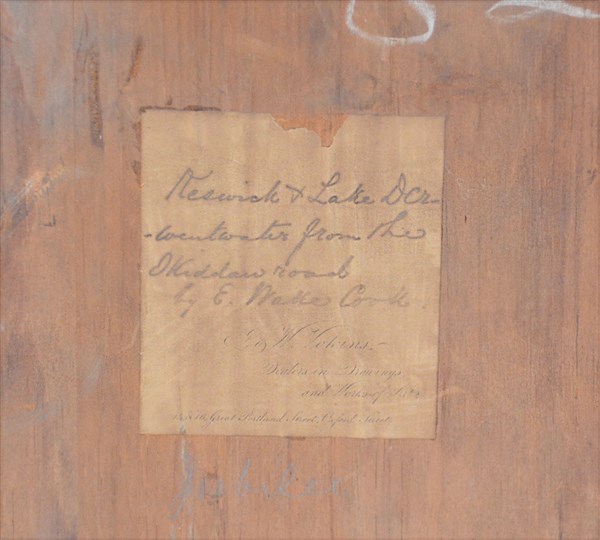 Keswick & Lake Der-
-wentwater from the
Skiddaw road
by E. Wake Cook.
& W. Vokins.
Dealers in Drawings
and Works of Art
Great Portland Street, Oxford Street